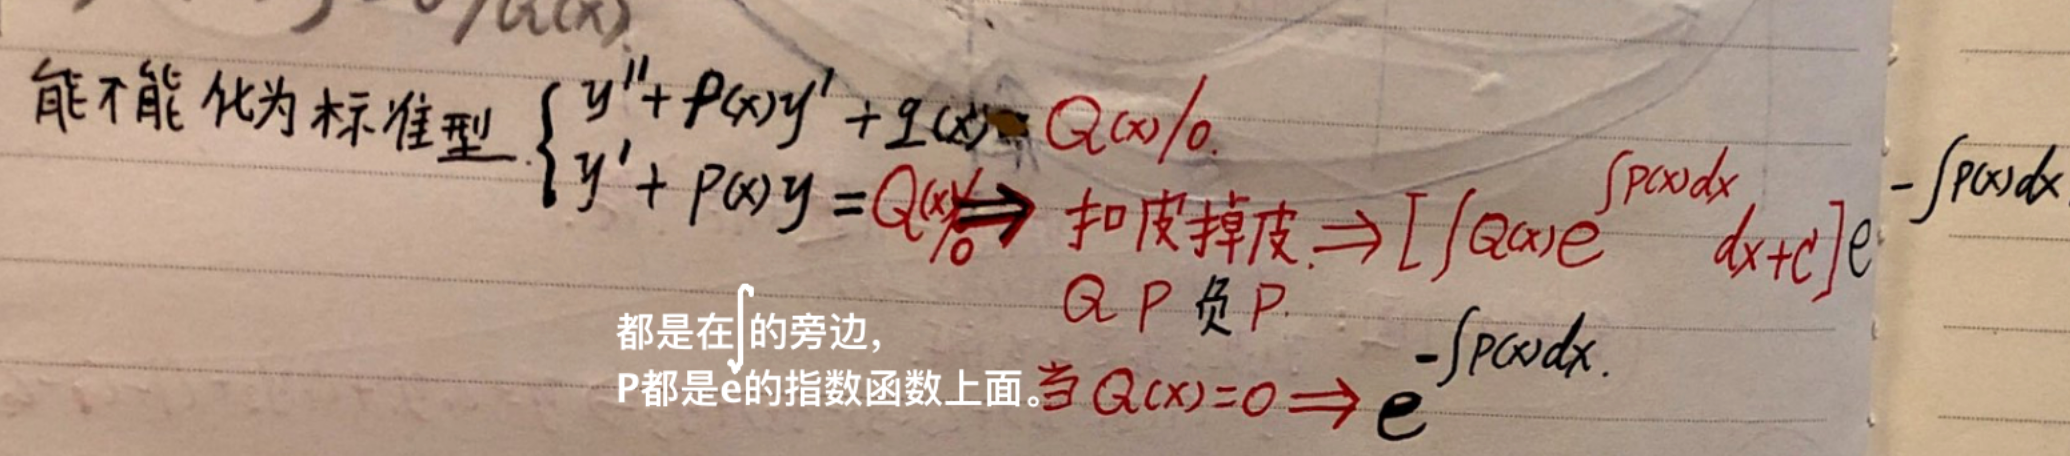 /Q(x).
能不能化为标准型. { y''+p(x)y'+q(x)=Q(x)/0.
y'+p(x)y=Q(x)/0 ⇒ 扣皮掉皮. ⇒ [∫Q(x)e^{∫p(x)dx}dx+C]e^{-∫p(x)dx}
Q P 负 P.
都是在∫的旁边,
P都是e的指数函数上面。
当Q(x)=0 ⇒ e^{-∫p(x)dx}.